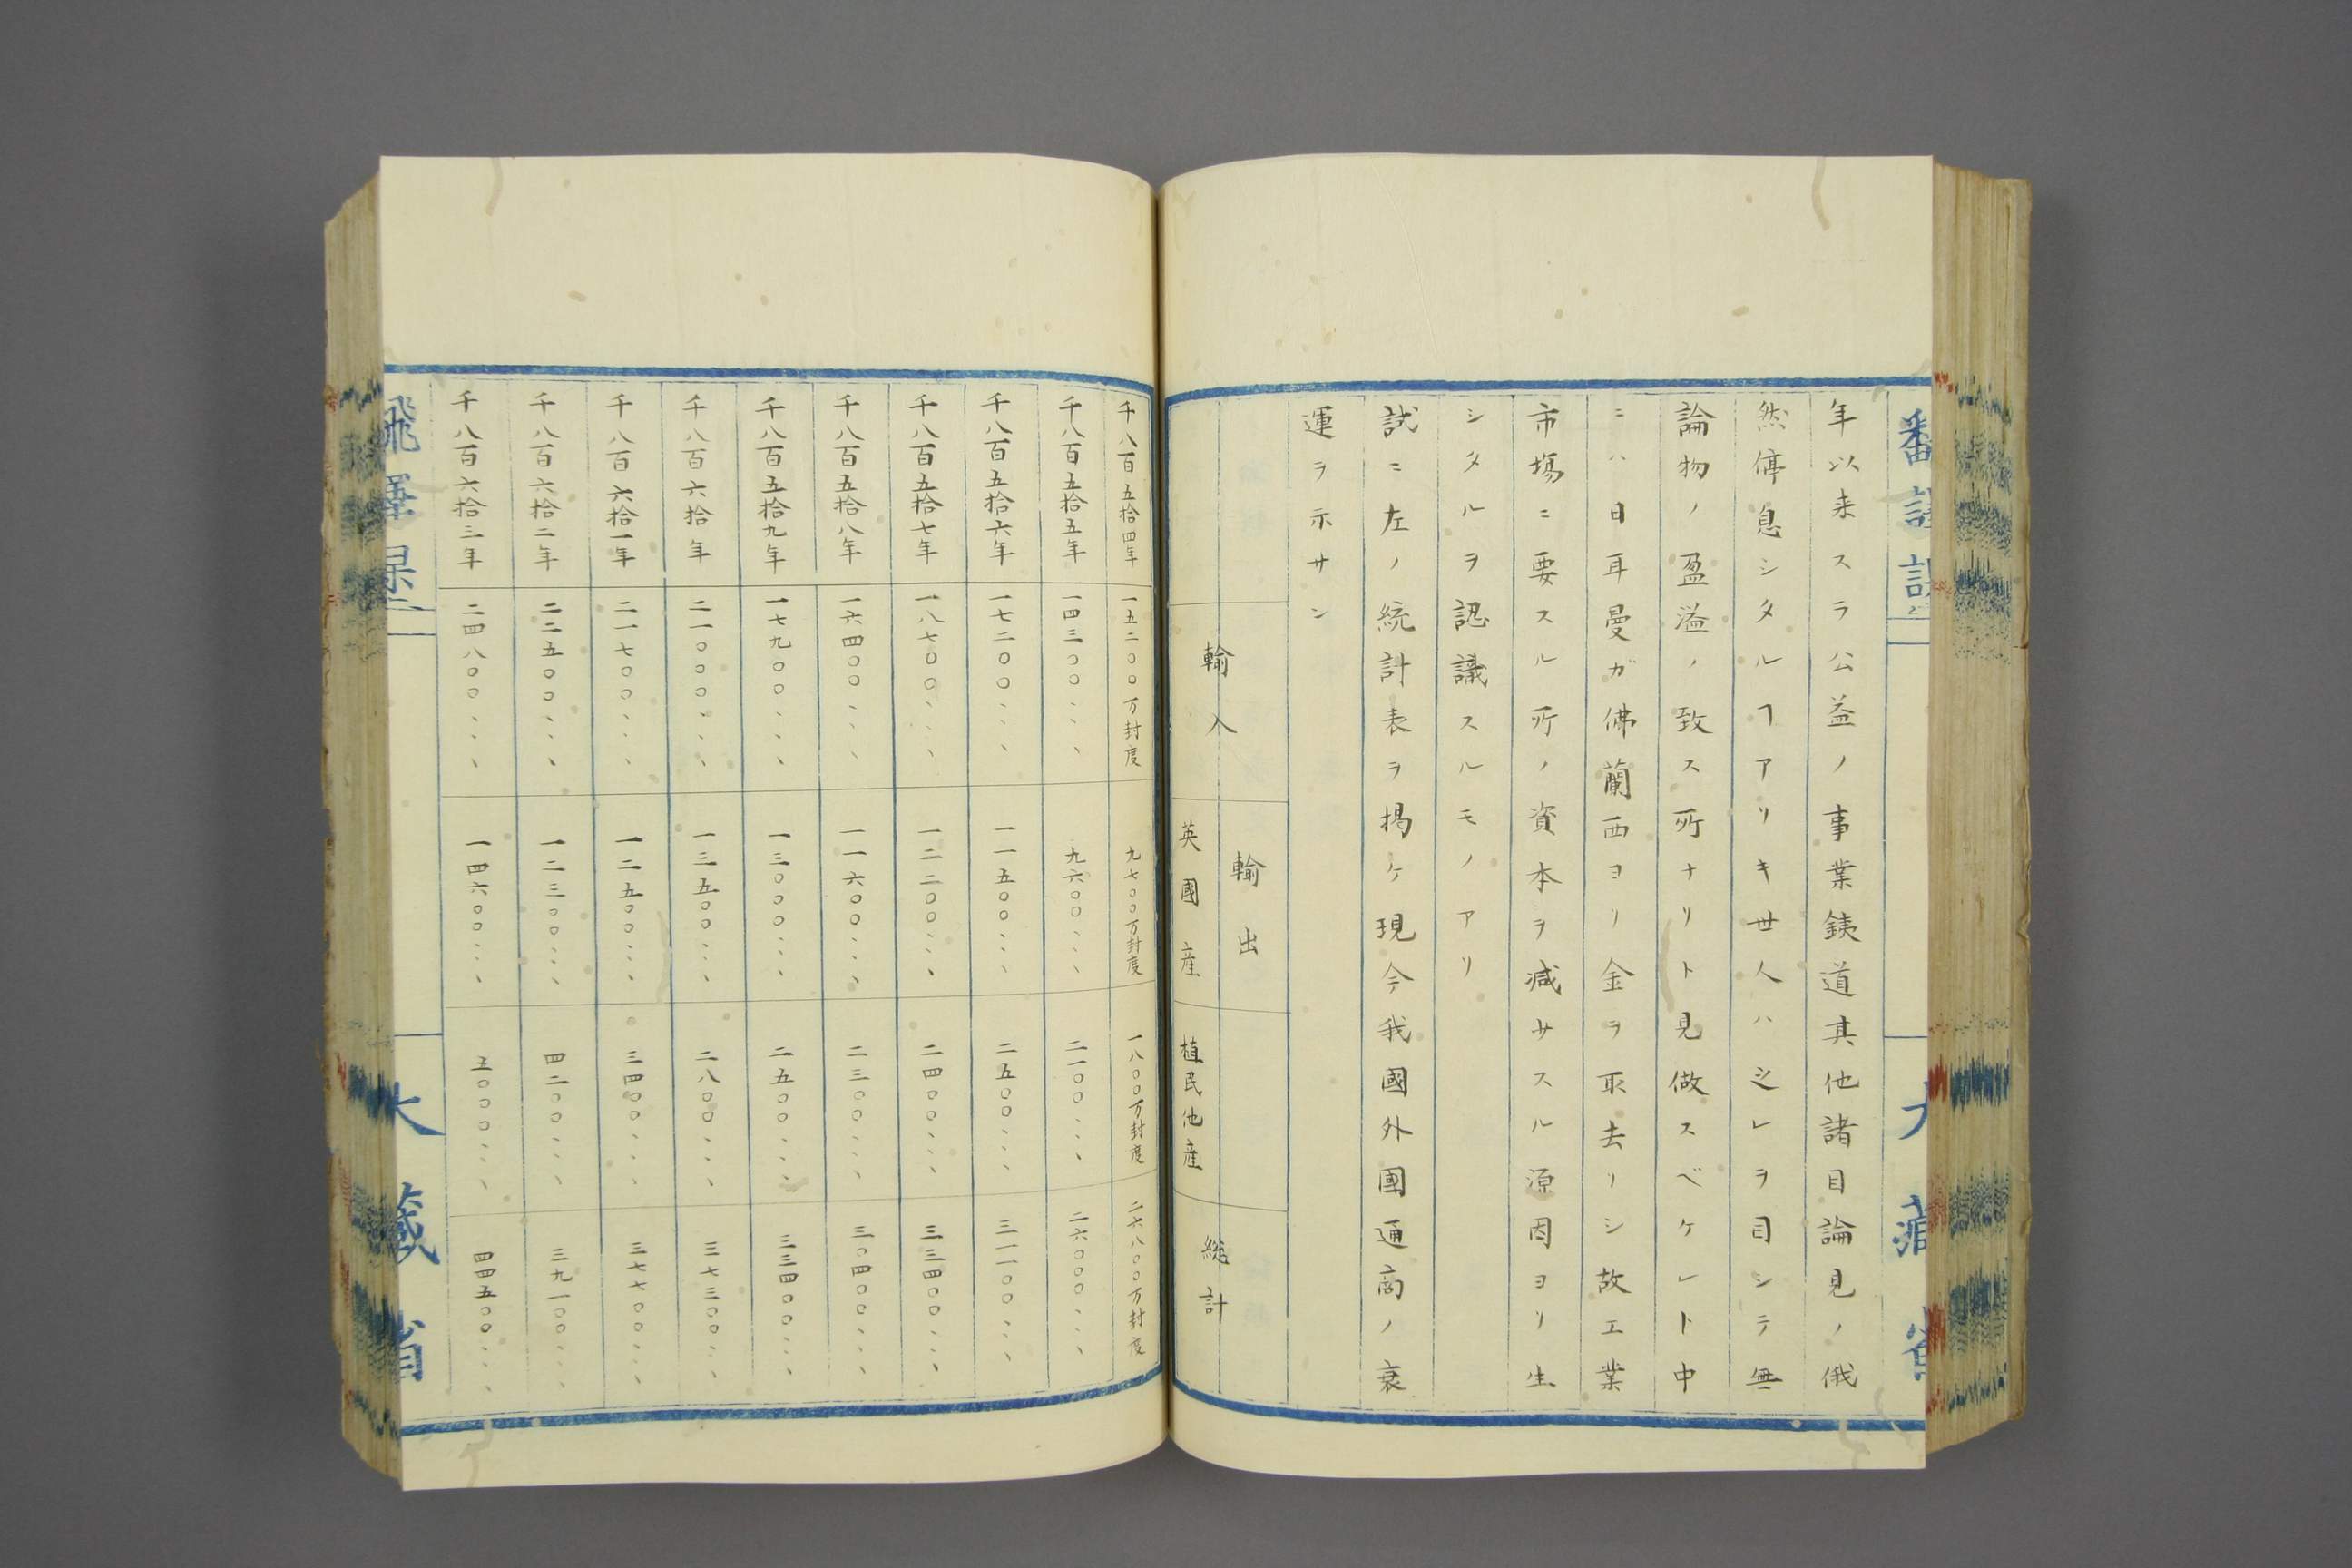 年以来スラ公益ノ事業銕道其他諸目論見ノ俄
然停息シタルヿアリキ世人ハ之レヲ目シテ無
論物ノ盈溢ノ致ス所ナリト見做スベケレト中
ニハ日耳曼ガ佛蘭西ヨリ金ヲ取去リシ故工業
市場ニ要スル所ノ資本ヲ减サスル源因ヨリ生
シタルヲ認議スルモノアリ
試ニ左ノ統計表ヲ掲ケ現今我國外國通商ノ衰
運ヲ示サン
輸入
輸出
英國産
植民他産
総計
千八百五拾四年 一五二〇〇万封度 九七〇〇万封度 一八〇〇万封度 二六八〇〇万封度
千八百五拾五年 一四三〇〇、、、 九六〇〇、、、 二一〇〇、、、 二六〇〇〇、、、
千八百五拾六年 一七二〇〇、、、 一一五〇〇、、、 二五〇〇、、、 三一一〇〇、、、
千八百五拾七年 一八七〇〇、、、 一二二〇〇、、、 二四〇〇、、、 三三四〇〇、、、
千八百五拾八年 一六四〇〇、、、 一一六〇〇、、、 二三〇〇、、、 三〇四〇〇、、、
千八百五拾九年 一七九〇〇、、、 一三〇〇〇、、、 二五〇〇、、、 三三四〇〇、、、
千八百六拾年 二一〇〇〇、、、 一三五〇〇、、、 二八〇〇、、、 三七三〇〇、、、
千八百六拾一年 二一七〇〇、、、 一二五〇〇、、、 三四〇〇、、、 三七七〇〇、、、
千八百六拾二年 二二五〇〇、、、 一二三〇〇、、、 四二〇〇、、、 三九一〇〇、、、
千八百六拾三年 二四八〇〇、、、 一四六〇〇、、、 五〇〇〇、、、 四四五〇〇、、、
大藏省